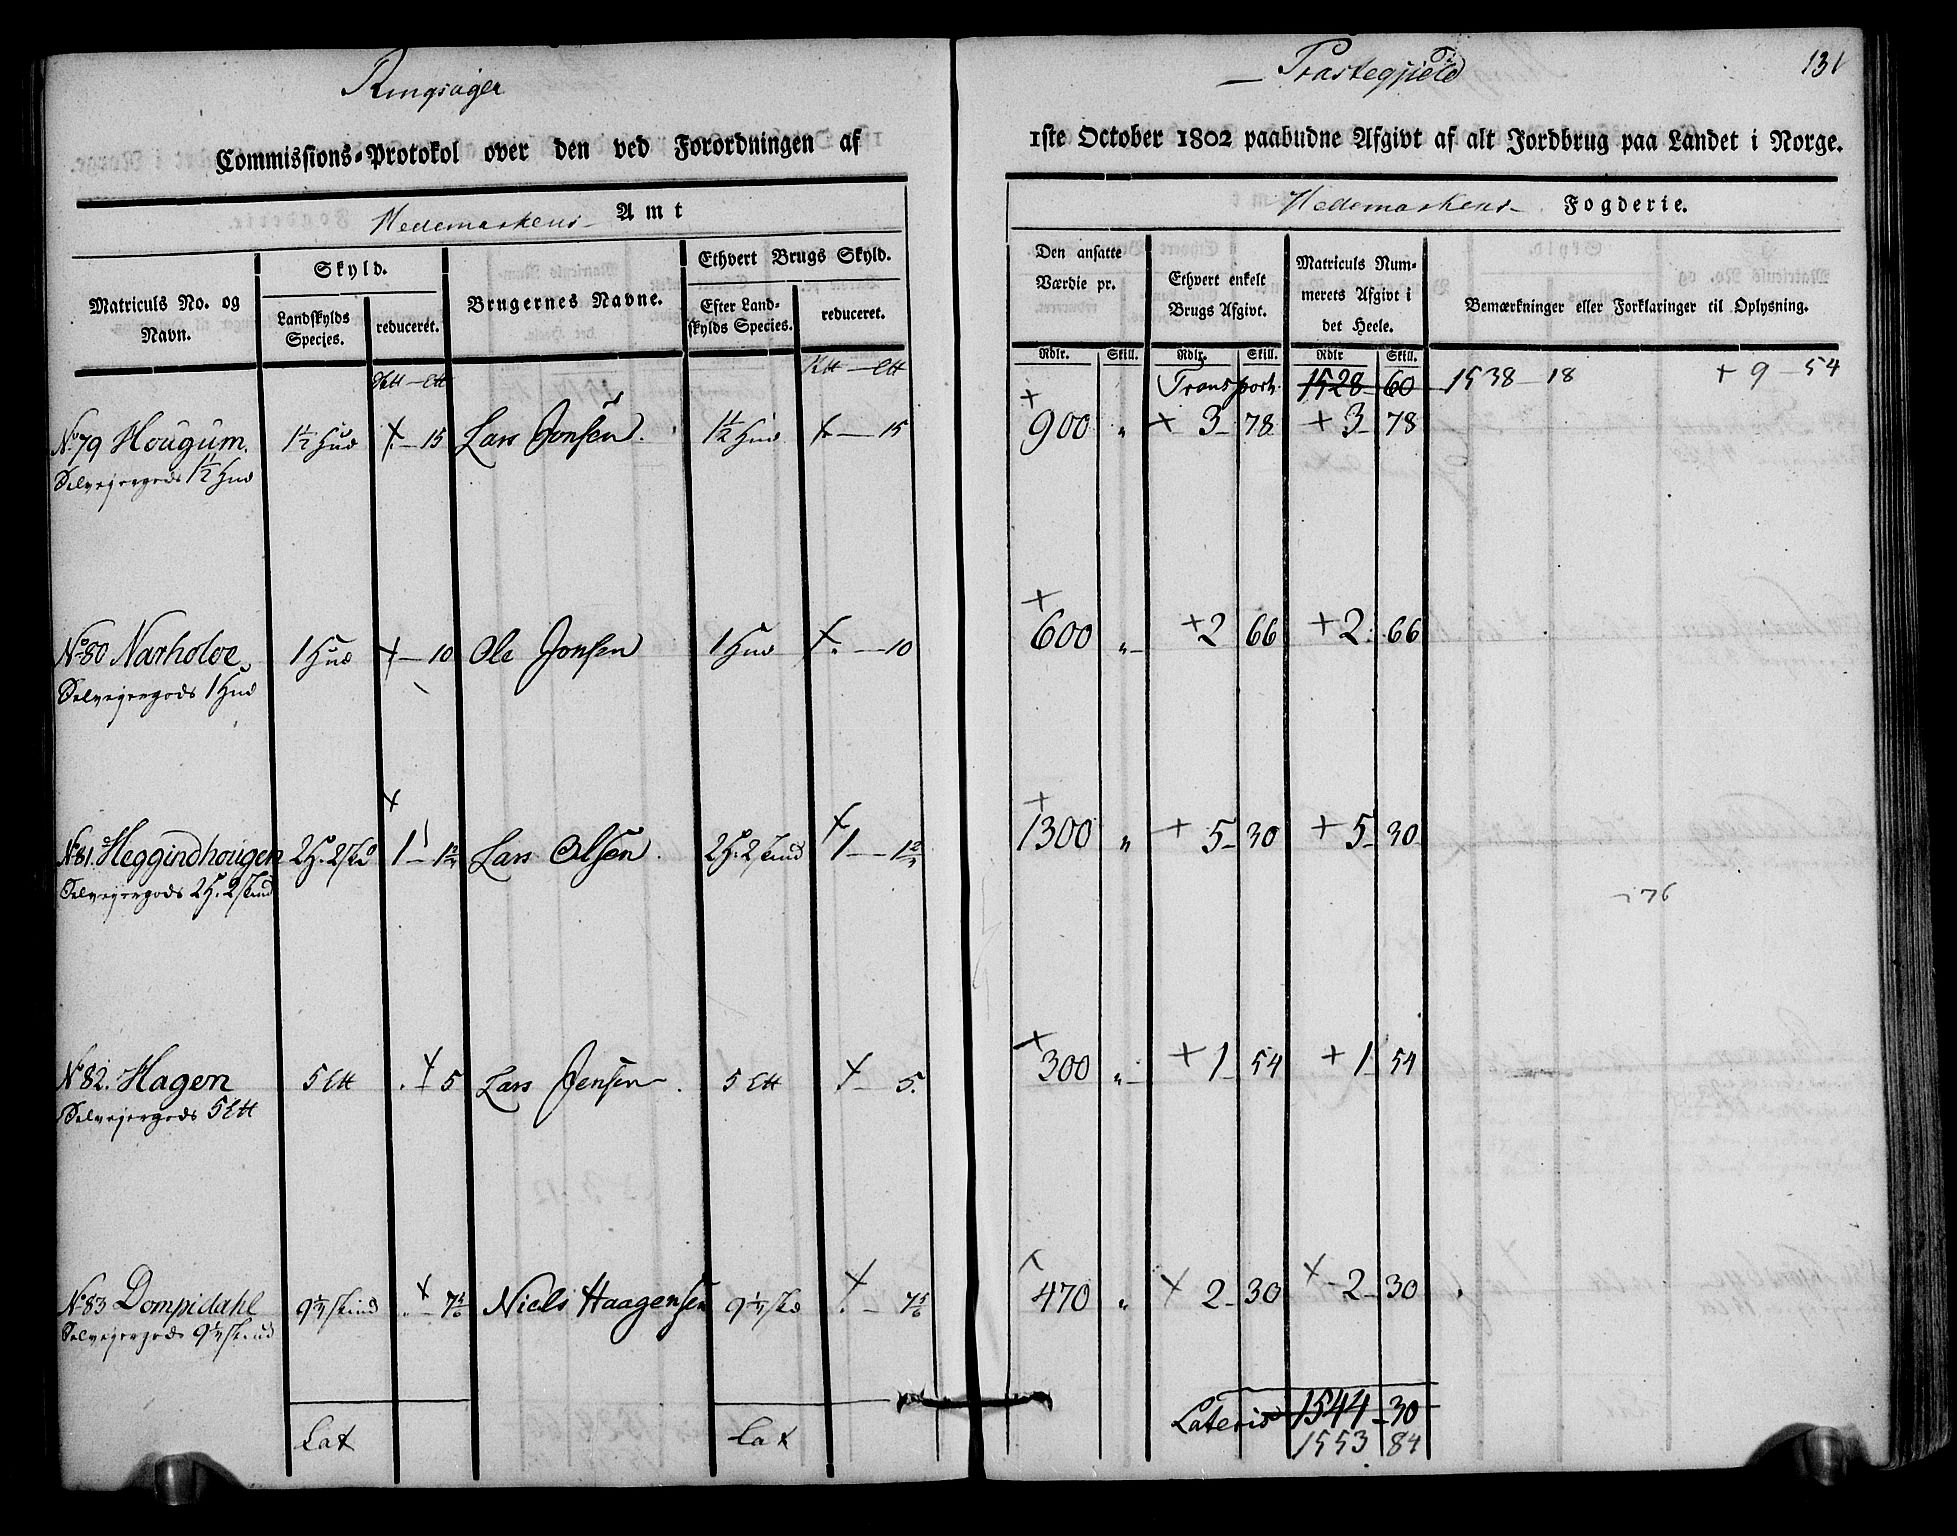 Ringsager
Præstegjield
131
Commissions-Protokol over den ved Forordningen af
1ste October 1802 paabudne Afgivt af alt Jordbrug paa Landet i Norge.
Hedemarkens Amt
Hedemarkens Fogderie.
Matriculs No. og Navn.
Skyld.
Landskylds Species.
reduceret.
Brugernes Navne.
Ethvert Brugs Skyld.
Efter Landskylds Species.
reduceret.
Den ansatte Værdie pr.
Ethvert enkelt Brugs Afgivt.
Matriculs Nummerets Afgivt i det Heele.
Bemærkninger eller Forklaringer til Oplysning.
Rdlr. Skill. Rdlr. Skill. Rdlr Skill.
Transport. 1528 60 1538 - 18 + 9 - 54
No 79 Hougum. 1½ Hud + - 15 Lars Jonsen. 1½ Hud + - 15 + 900 " + 3 - 78 + 3 - 78
Selvejergods 1½ Hud
No 80 Narholoe 1 Hud + - 10 Ole Jonsen 1 Hud + - 10 + 600 " + 2 66 + 2 66
Selvejergods 1 Hud
No 81. Heggindhougen 2 H. 2 skd + 1 - 1⅔ Lars Olsen. 2 H. 2 skind + 1 - 1⅔ + 1300 " + 5 - 30 + 5 - 30
Selvejergods 2 H. 2 skind
- 76
No 82. Hagen 5 Ltt + 5 Lars Jensen. 5 Ltt + - 5. + 300 " + 1 - 54 + 1 - 54
Selvejergods 5 Ltt
No 83 Dompidahl 9¼ skind + - 7⅚ Niels Haagensen 9¼ skd + - 7⅚ 470 " + 2 - 30 + - 2 - 30
Selvejergods 9¼ skind
Lat Lat Lateris 1544 - 30
1553 84